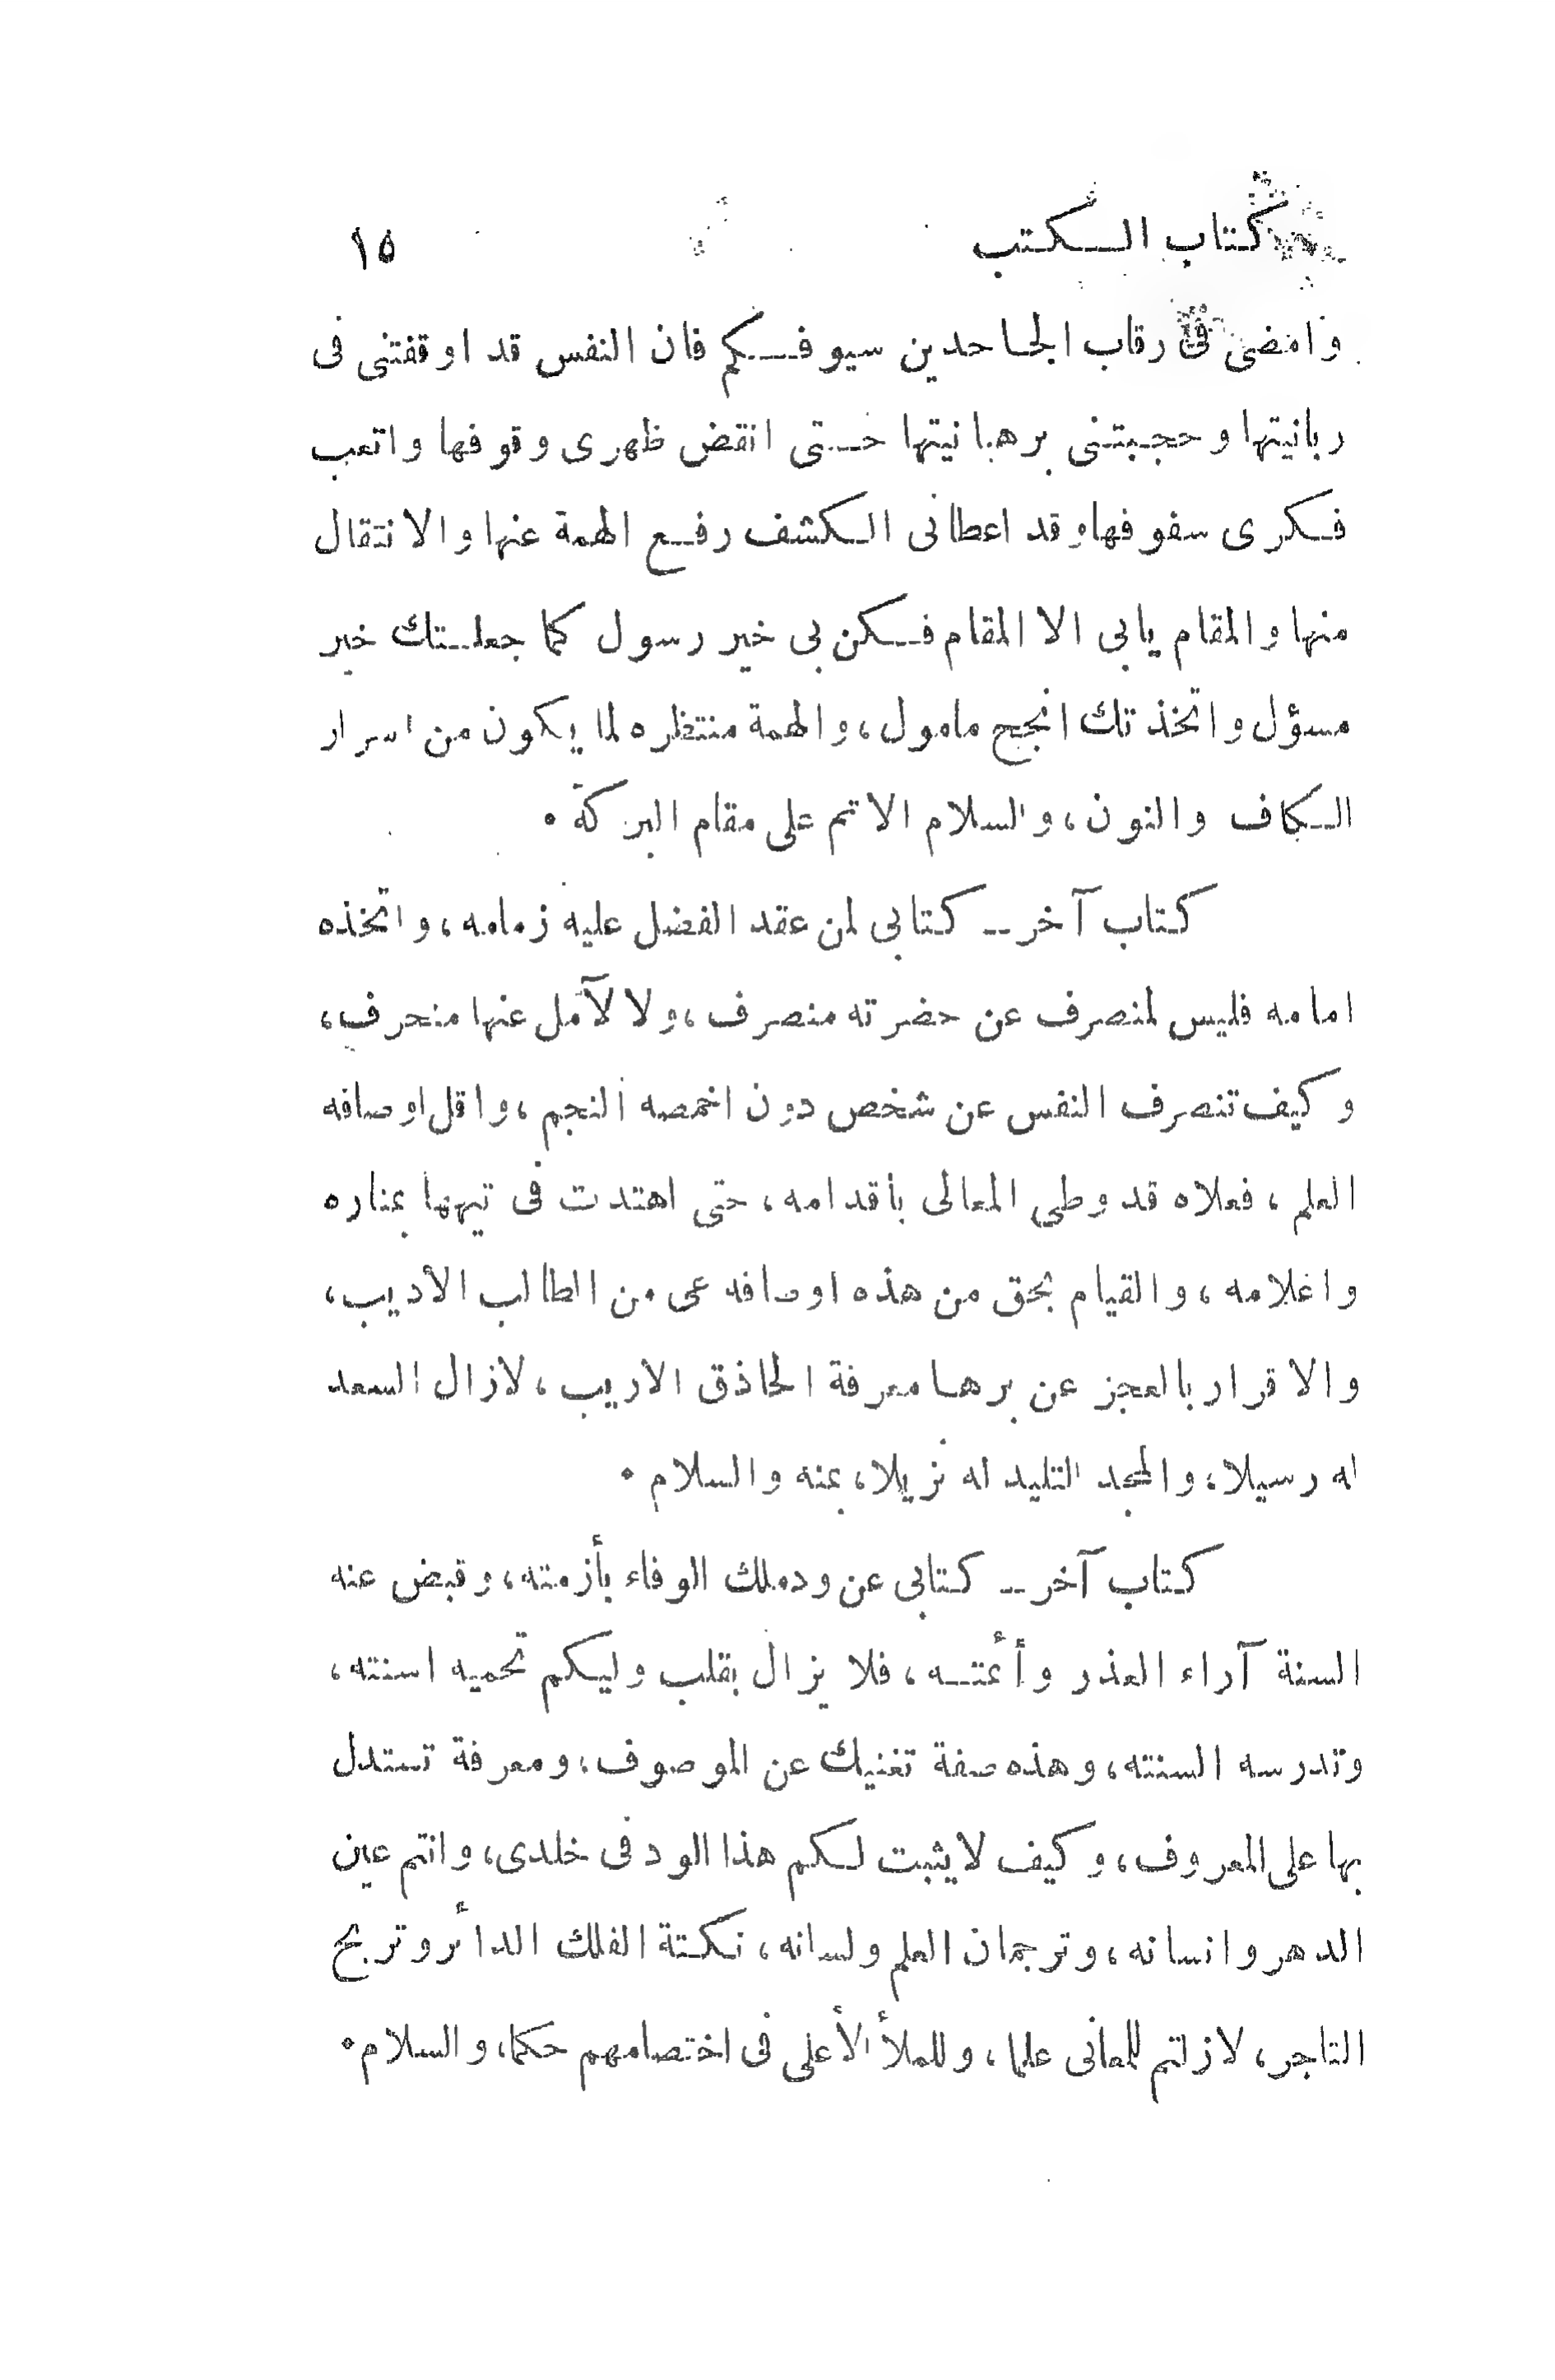 كتاب الكتب ١٥
وامضى فى رقاب الجاحدين سيوفكم فان النفس قد اوقفتنى فى
ربانيتها وحجبتنى برهبانيتها حتى انقض ظهرى وقوفها واتعب
فكرى سفوفها وقد اعطانى الكشف رفع الهمة عنها والانتقال
منها والمقام يابى الا المقام فكن بى خير رسول كما جعلتك خير
مسؤل واتخذتك انجح مامول، والهمة منتظره لما يكون من اسرار
الكاف والنون، والسلام الاتم على مقام البركة ٠
كتاب آخر -- كتابى لمن عقد الفضل عليه زمامه، واتخذه
امامه فليس لمنصرف عن حضرته منصرف، ولا لآمل عنها منحرف،
وكيف تنصرف النفس عن شخص دون اخمصه النجم، واقل اوصافه
العلم، فعلاه قد وطى المعالى بأقدامه، حتى اهتدت فى تيهها بمناره
واعلامه، والقيام بحق من هذه اوصافه عى من الطالب الأديب،
والاقرار بالعجز عن برها معرفة الحاذق الاريب، لازال السعد
له رسيلا، والمجد التليد له نزيلا، بمنه والسلام ٠
كتاب آخر -- كتابى عن ود ملك الوفاء بأزمته، وقبض عنه
السنة آراء العذر وأئمته، فلا يزال بقلب وليكم تحميه اسنته،
وتدرسه السنته، وهذه صفة تغنيك عن الموصوف، ومعرفة تستدل
بها على المعروف، وكيف لايثبت لكم هذا الود فى خلدى، وانتم عين
الدهر وانسانه، وترجمان العلم ولسانه، نكتة الفلك الدائر وتربح
التاجر، لازلتم للمعانى علما، وللملأ الأعلى فى اختصامهم حكما، والسلام٠